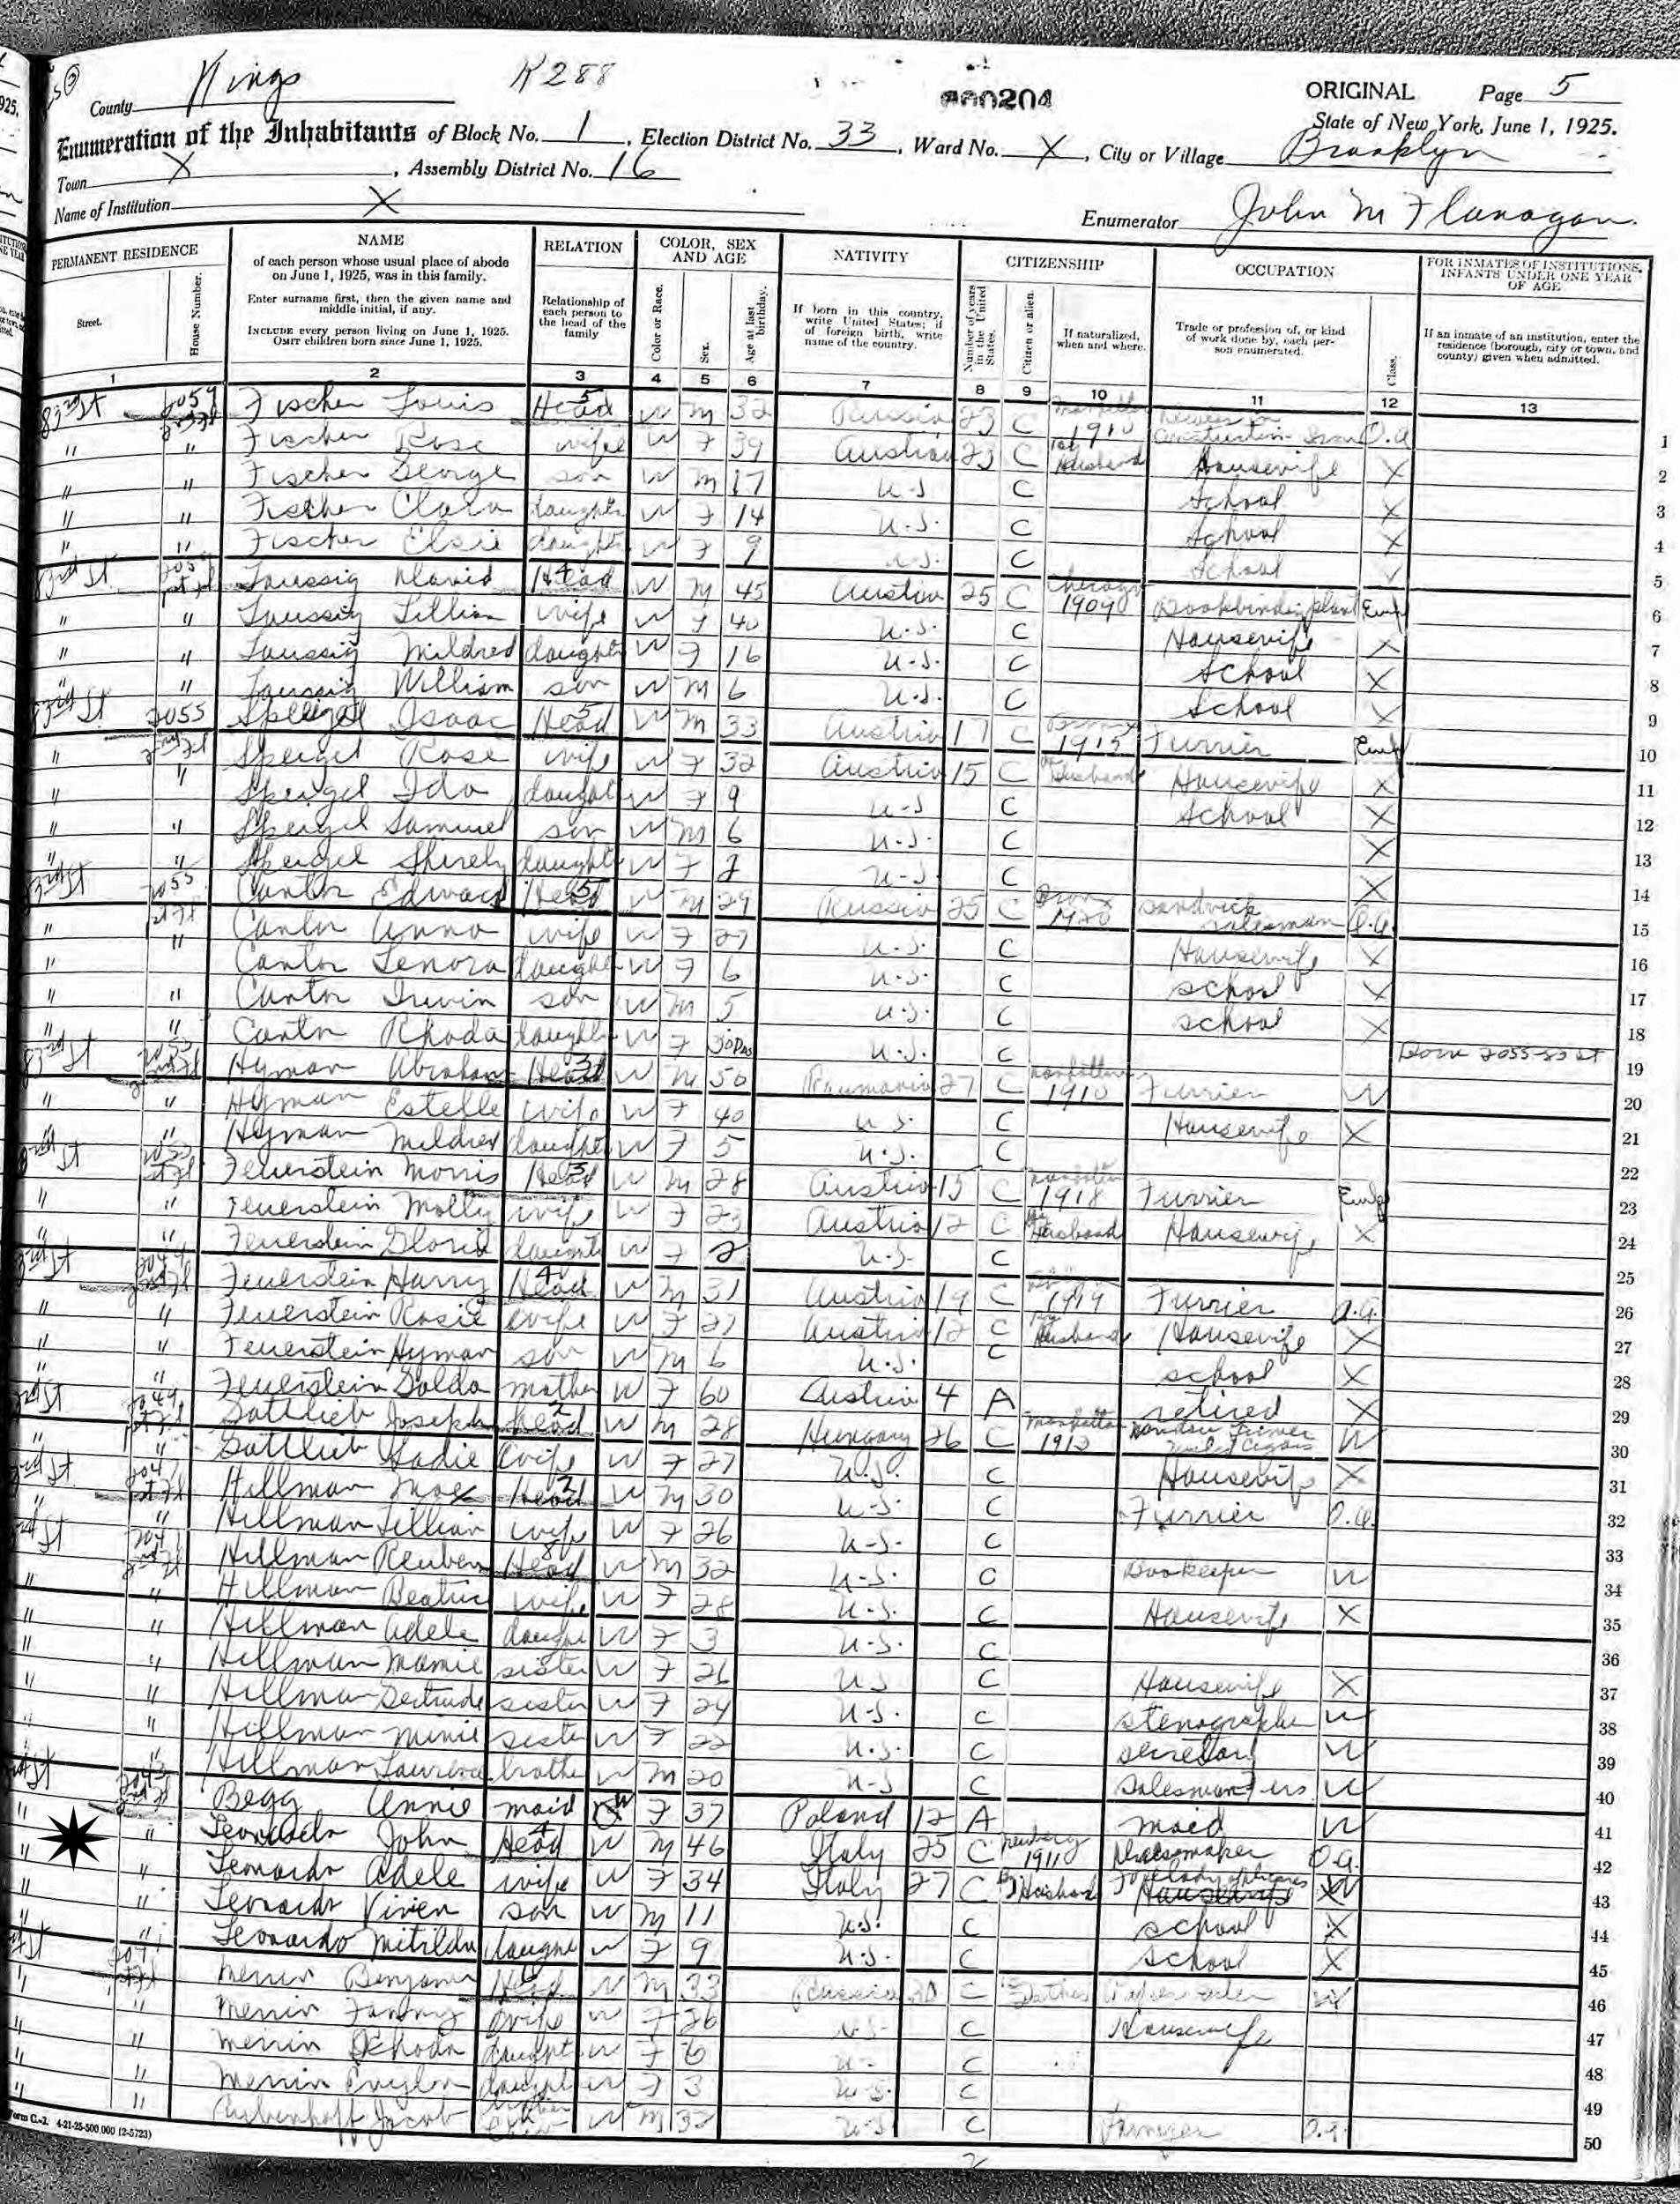 County Kings R288 000204 ORIGINAL Page 5
State of New York, June 1, 1925.
Enumeration of the Inhabitants of Block No. 1, Election District No. 33, Ward No. X, City or Village Brooklyn
Town X, Assembly District No. 16
Name of Institution X Enumerator John M Flanagan.
PERMANENT RESIDENCE
Street.
House Number.
NAME
of each person whose usual place of abode
on June 1, 1925, was in this family.
Enter surname first, then the given name and
middle initial, if any.
INCLUDE every person living on June 1, 1925.
OMIT children born since June 1, 1925.
RELATION
Relationship of
each person to
the head of the
family
COLOR, SEX
AND AGE
Color or Race.
Sex.
Age at last
birthday.
NATIVITY
If born in this country,
write United States; if
of foreign birth, write
name of the country.
CITIZENSHIP
Number of years
in the United
States.
Citizen or alien.
If naturalized,
when and where.
OCCUPATION
Trade or profession of, or kind
of work done by, each per-
son enumerated.
Class.
FOR INMATES OF INSTITUTIONS,
INFANTS UNDER ONE YEAR
OF AGE
If an inmate of an institution, enter the
residence (borough, city or town, and
county) given when admitted.
1 2 3 4 5 6 7 8 9 10 11 12 13
83rd St 2059 Fischer Louis Head W M 32 Russia 23 C 1910 O.A 1
" " Fischer Rose wife W F 39 Austria 23 C Husband Housewife X 2
" " Fischer George son W M 17 U.S C School X 3
" " Fischer Clara daughter W F 14 U.S. C School X 4
" " Fischer Elsie daughter W F 9 U.S. C School 5
83rd St Taussig David Head W M 45 Austria 25 C Chicago 1909 Bookbinding plant Emp 6
" " Taussig Lillian wife W F 40 U.S. C Housewife X 7
" " Taussig Mildred daughter W F 16 U.S. C School X 8
" " Taussig William son W M 6 U.S. C School 9
83rd St 2055 Speigel Isaac Head W M 33 Austria 17 C Bronx 1915 Furrier Emp 10
" " Speigel Rose wife W F 32 Austria 15 C Husband Housewife X 11
" Speigel Ida daught W F 9 U.S C School X 12
" " Speigel Samuel son W M 6 U.S. C X 13
" " Speigel Shirely daught W F 2 U.S. C X 14
83rd St 2055 Cantor Edward Head W M 29 Russia 25 C Bronx 1920 Salesman O.A. 15
" " Cantor Anna wife W F 27 U.S. C Housewife X 16
" Cantor Lenora daughter W F 6 U.S. C School X 17
" " Cantor Irwin son W M 5 U.S. C School X 18
" " Cantor Rhoda daughter W F U.S. C Born 2055-83 St 19
83rd St 2053 Hyman Abraham Head W M 50 Roumania 27 C Manhattan 1910 Furrier W 20
" " Hyman Estelle wife W F 40 U.S. C Housewife X 21
" " Hyman Mildred daughter W F 5 U.S. C 22
83rd St 2053 Feuerstein Morris Head W M 28 Austria 15 C Manhattan 1918 Furrier Emp 23
" " Feuerstein Molly wife W F 23 Austria 12 C Husband Housewife X 24
" " Feuerstein Gloria daught W F 2 U.S. C 25
Feuerstein Harry Head W M 31 Austria 19 C 1919 Furrier O.A. 26
" " Feuerstein Rosie wife W F 27 Austria 12 C Husband Housewife X 27
" " Feuerstein Hyman son W M 6 U.S. C School X 28
" " Feuerstein Golda mother W F 60 Austria 4 A retired X 29
2049 Gottlieb Joseph head W M 28 Hungary 26 C Manhattan 1912 W 30
" " Gottlieb Sadie wife W F 27 U.S. C Housewife X 31
2047 Hillman Moe Head W M 30 U.S. C Furrier O.A. 32
" Hillman Lillian wife W F 26 U.S. C 33
Hillman Reuben Head W M 32 U.S. C Bookeeper W 34
" " Hillman Beatric wife W F 28 U.S. C Housewife X 35
" " Hillman Adele daught W F 3 U.S. C 36
" " Hillman Mamie sister W F 26 U.S C Housewife X 37
" " Hillman Gertrude sister W F 24 U.S. C stenographer W 38
" " Hillman Minie sister W F 22 U.S. C secretary W 39
" " Hillman brother W M 20 U.S C Salesman Furs W 40
Begg Annie maid W F 37 Poland 12 A maid W 41
" " Leonardo John Head W M 46 Italy 25 C 1911 Dressmaker O.A. 42
" " Leonardo Adele wife W F 34 Italy 27 C Husband W 43
" " Leonardo Vivien son W M 11 U.S. C School X 44
" " Leonardo Mitilda daught W F 9 U.S. C School X 45
Merrin Benjamin Head W M 33 Russia 30 C Father W 46
" " Merrin Fanny wife W F 26 U.S. C Housewife 47
" " Merrin Rhoda daught W F 6 U.S. C 48
" " Merrin Evylon daught W F 3 U.S. C 49
" " Jacob W M 32 U.S C O.A. 50
Form C.-2. 4-21-25-500,000 (2-5723)